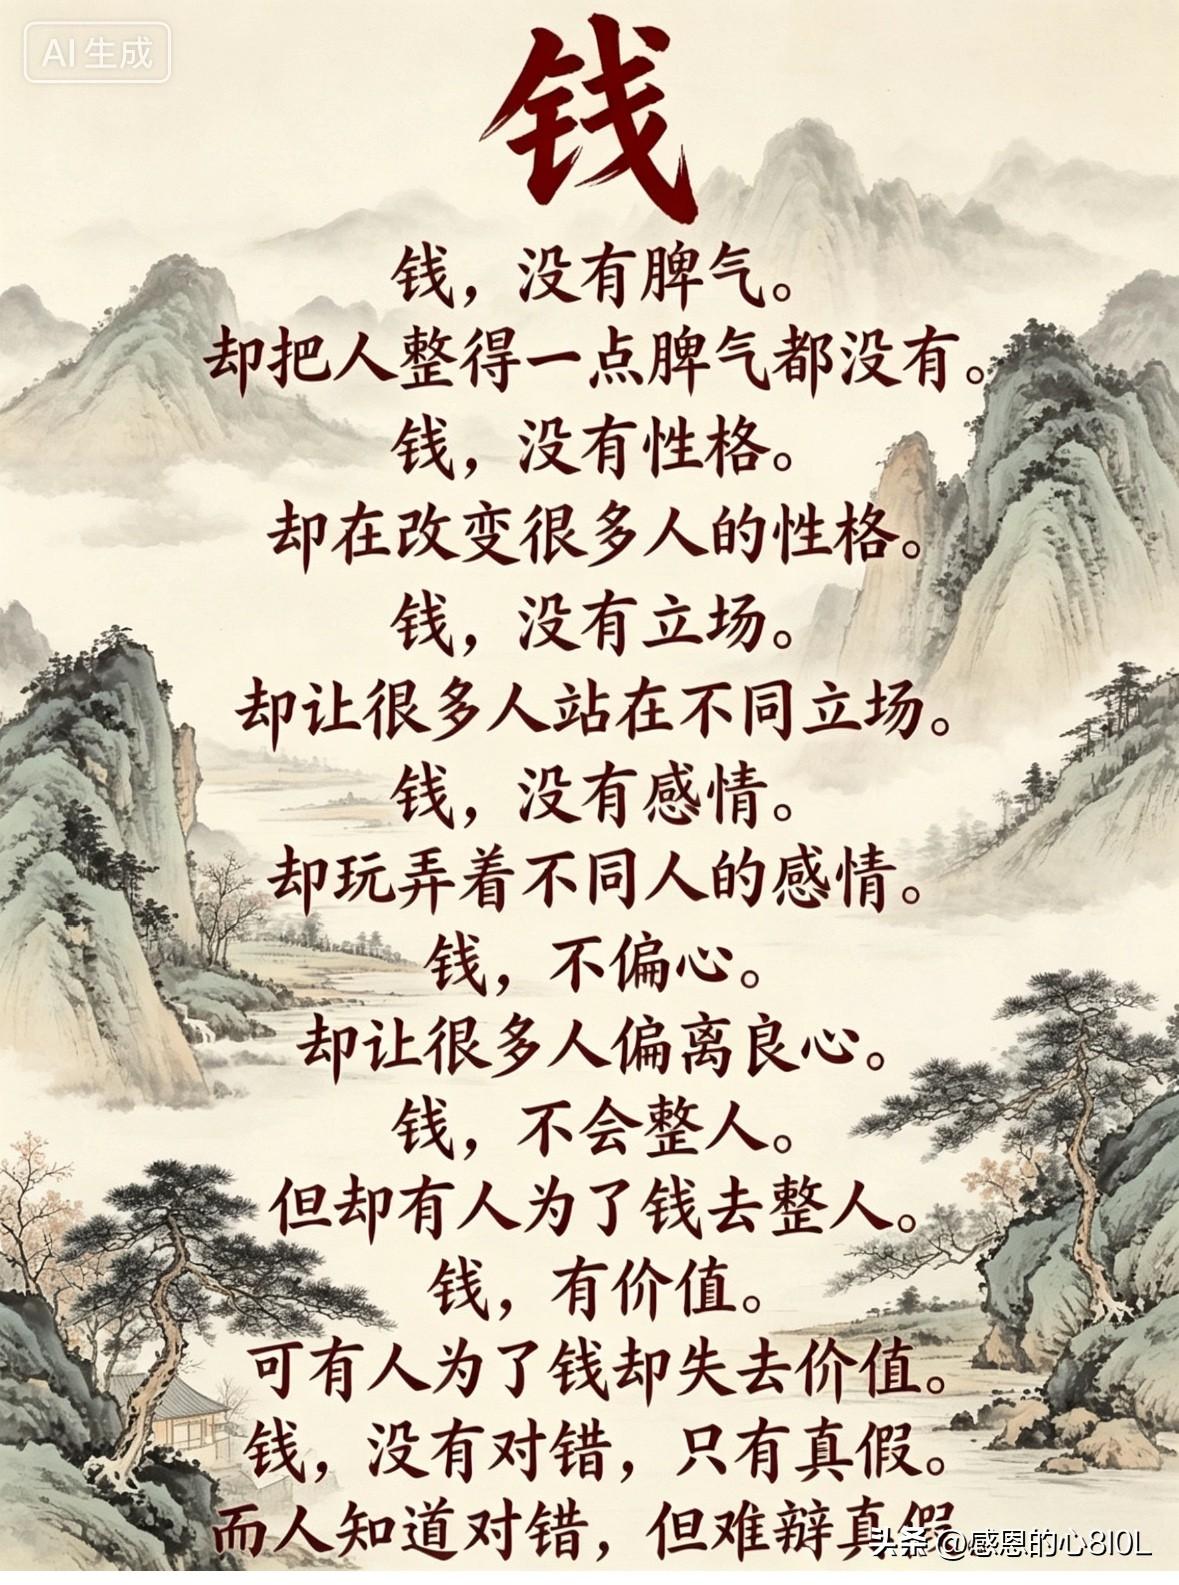 AI 生成
钱
钱，没有脾气。
却把人整得一点脾气都没有。
钱，没有性格。
却在改变很多人的性格。
钱，没有立场。
却让很多人站在不同立场。
钱，没有感情。
却玩弄着不同人的感情。
钱，不偏心。
却让很多人偏离良心。
钱，不会整人。
但却有人为了钱去整人。
钱，有价值。
可有人为了钱却失去价值。
钱，没有对错，只有真假。
而人知道对错，但难辩真假。
头条 @感恩的心8l0L